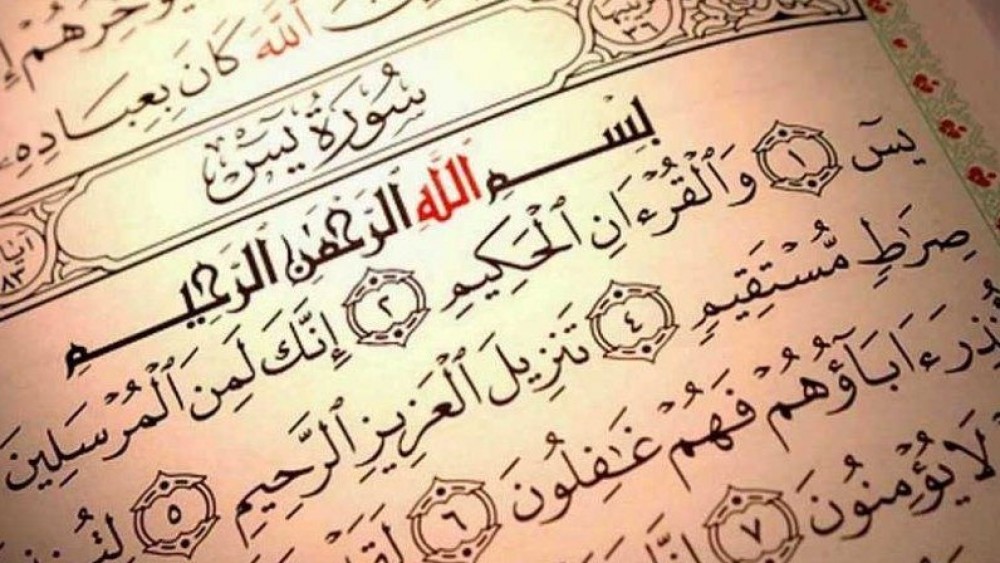 يُؤَخِّرُهُمْ إِ
ٱللَّهَ كَانَ بِعِبَادِهِۦ
ترتيبها ٣٦
سُورَةُ يسٓ
آياتها ٨٣
بِسْمِ ٱللَّهِ ٱلرَّحْمَٰنِ ٱلرَّحِيمِ
يسٓ ١ وَٱلْقُرْءَانِ ٱلْحَكِيمِ ٢ إِنَّكَ لَمِنَ ٱلْمُرْسَلِينَ
صِرَٰطٍ مُّسْتَقِيمٍ ٤ تَنزِيلَ ٱلْعَزِيزِ ٱلرَّحِيمِ ٥ لِتُنذِ
نذِرَ ءَابَآؤُهُمْ فَهُمْ غَٰفِلُونَ ٦ لَقَدْ
لَا يُؤْمِنُونَ ٧ إِنَّا